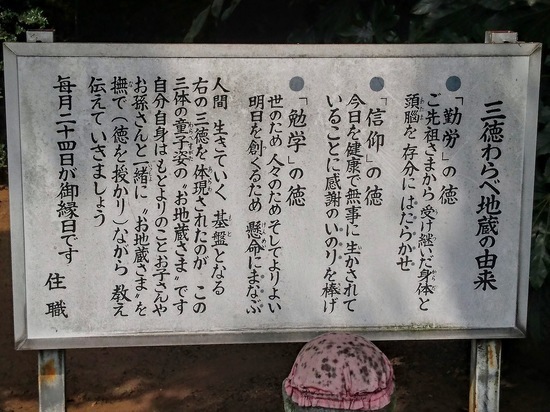 三徳わらべ地蔵の由来
●「勤労」の徳
ご先祖さまから 受け継いだ身体と
頭脳を 存分に はたらかせ
●「信仰」の徳
今日を健康で無事に 生かされて
いることに感謝のいのりを捧げ
●「勉学」の徳
世のため 人々のため そしてよりよい
明日を創くるため 懸命にまなぶ
人間 生きていく 基盤となる
右の三徳を 体現されたのが この
三体の童子姿の〝お地蔵さま〟です
自分自身はもとよりのことお子さんや
お孫さんと一緒に〝お地蔵さま〟を
撫で(徳を授かり)ながら 教え
伝えていきましょう
毎月二十四日が御縁日です 住職